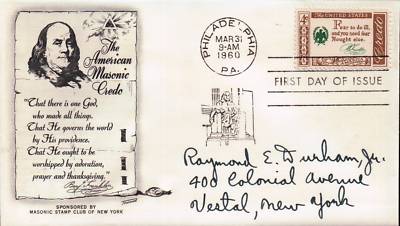 The
American
Masonic
Credo
"That there is one God,
who made all things.
That He governs the world
by His providence.
That He ought to be
worshipped by adoration,
prayer and thanksgiving."
B. Franklin
SPONSORED BY
MASONIC STAMP CLUB OF NEW YORK
PHILADELPHIA
MAR 31
9-AM
1960
PA.
4¢
UNITED STATES
Fear to do ill,
and you need fear
Nought else.
FIRST DAY OF ISSUE
Raymond E. Durham, Jr.
400 Colonial Avenue
Vestal, New York